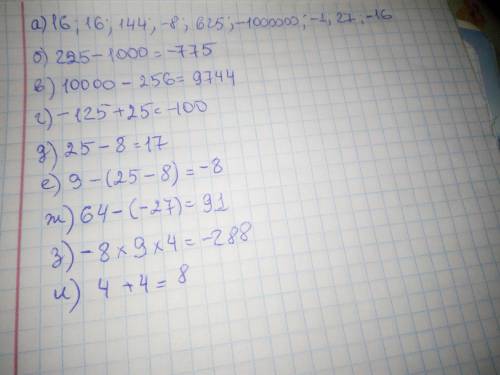 а) 16; 16; 144; -8; 625; -1000000; -1, 27; -16
б) 225 - 1000 = -775
в) 10000 - 256 = 9744
г) -125 + 25 = -100
д) 25 - 8 = 17
е) 9 - (25 - 8) = -8
ж) 64 - (-27) = 91
з) -8 × 9 × 4 = -288
и) 4 + 4 = 8